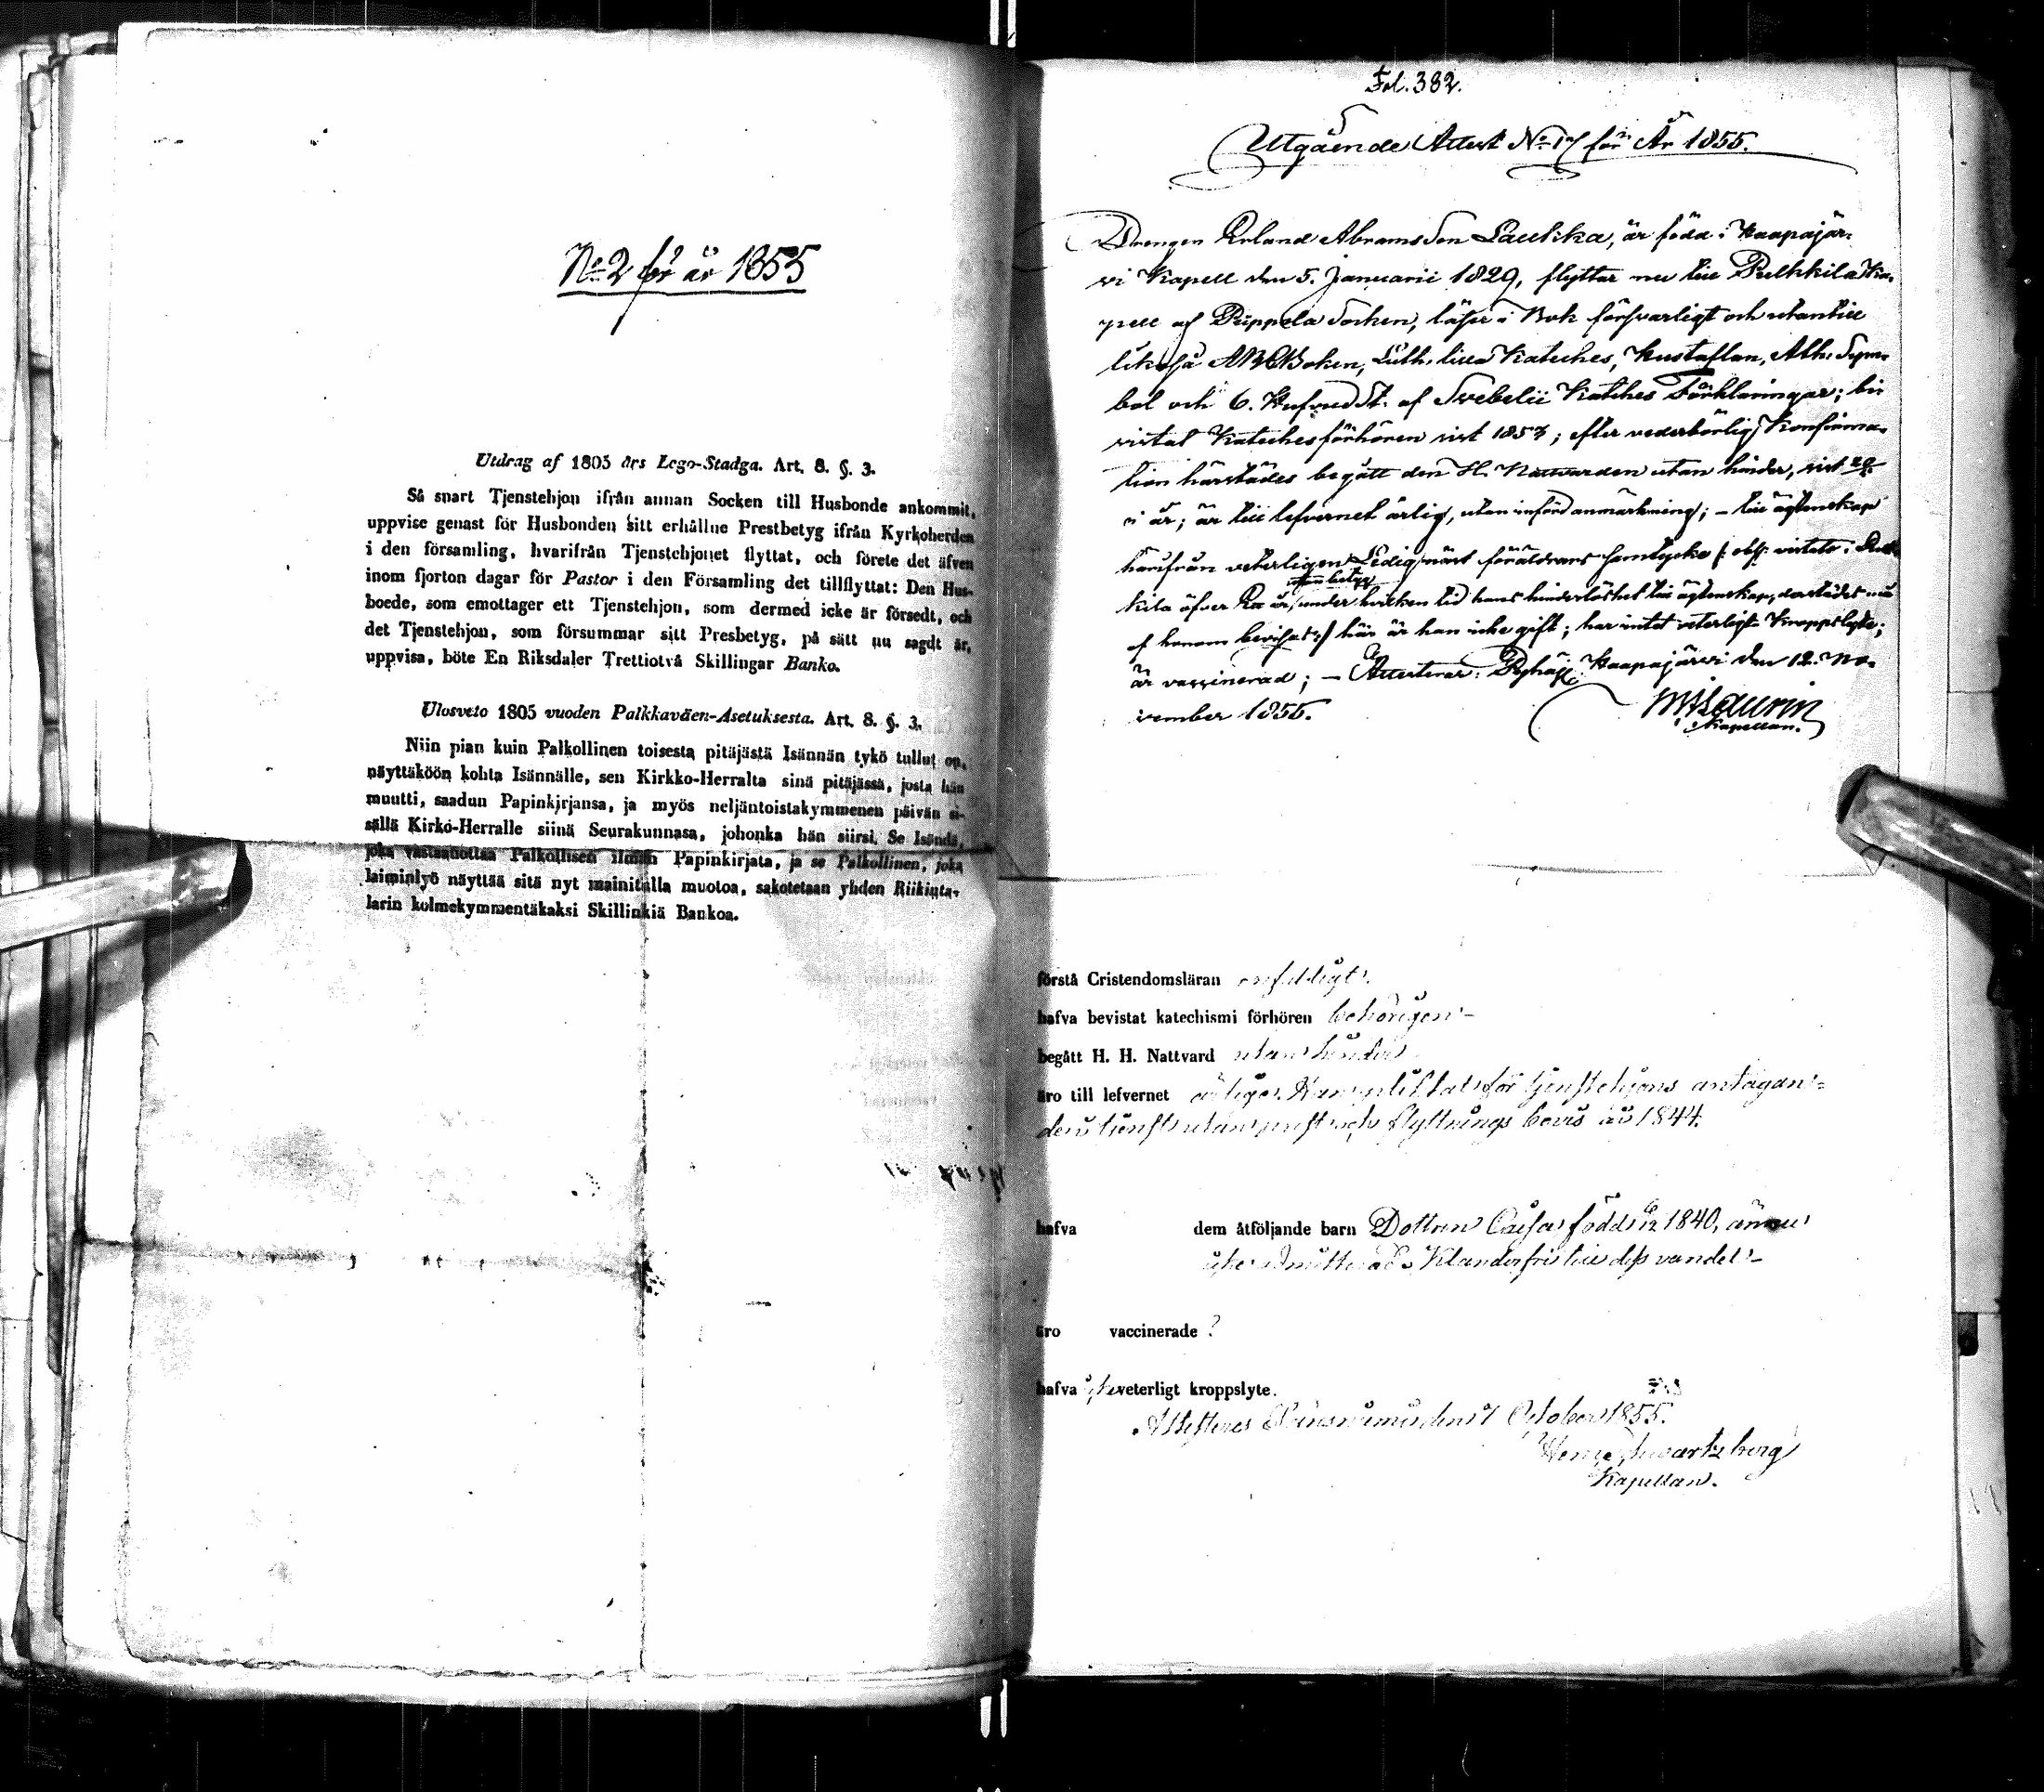 No 2 för år 1855
Utdrag af 1805 års Lego-Stadga. Art. 8. §. 3.
Så snart Tjenstehjon ifrån annan Socken till Husbonde ankommit,
uppvise genast för Husbonden sitt erhållne Prestbetyg ifrån Kyrkoherden
i den församling, hvarifrån Tjenstehjonet flyttat, och förete det äfven
inom fjorton dagar för Pastor i den Församling det tillflyttat: Den Hus-
boede, som emottager ett Tjenstehjon, som dermed icke är försedt, och
det Tjenstehjon, som försummar sitt Presbetyg, på sätt nu sagdt är,
uppvisa, böte En Riksdaler Trettiotvå Skillingar Banko.
Ulosveto 1805 vuoden Palkkaväen-Asetuksesta. Art. 8. §. 3.
Niin pian kuin Palkollinen toisesta pitäjästä Isännän tykö tullut on,
näyttäköön kohta Isännälle, sen Kirkko-Herralta sinä pitäjässä, josta hän
muutti, saadun Papinkirjansa, ja myös neljäntoistakymmenen päivän si-
sällä Kirko-Herralle siinä Seurakunnasa, johonka hän siirsi. Se Isändä,
joka vastaanottaa Palkollisen ilman Papinkirjata, ja se Palkollinen, joka
laiminlyö näyttää sitä nyt mainitulla muotoa, sakotetaan yhden Riikinta-
larin kolmekymmentäkaksi Skillinkiä Bankoa.
Fol. 382.
Utgående Attest No 17 för År 1855.
Drengen Erland Abramsson Laulika, är född i Haapajär-
vi Kapell den 5. Januarii 1829, flyttar nu till Pulkkila Ka-
pell af Piippola Socken, läser i Bok försvarligt och utantill
likaså ABCBoken, Luth. lilla Kateches, Hustaflan, Ath. Sym-
bol och 6. Hufvud St. af Svebelii Katches Förklaringar; bi-
vistat Katechesförhören sist 1853; efter vederbörlig Konfirma-
tion härstädes begått den H. Nattvarden utan hinder, sist
i år; är till lefvernet ärlig, utan införd anmärkning; - till äktenskap
härifrån veterligen Ledig näst föräldrars samtycke (: obs: vistats i Pulk-
utan betyg
kila öfver år, under hvilken tid hans hinderlöshet till äktenskap, derstädes må
af honom bevisas:) här är han icke gift; har intet veterligt Kroppslyte;
är vaccinerad; - Attesterar. Pyhäj: Haapajärvi den 12. No-
vember 1855.
Laurin
Kapellan.
förstå Cristendomsläran enfaldigt.
hafva bevistat katechismi förhören behörigen -
begått H. H. Nattvard utan hinder
äro till lefvernet ärliga. Han pliktat för tjenstehjons antagan-
de i tjenst utan prest och flyttnings bevis år 1844.
hafva dem åtföljande barn Dottren Caisa född 1840, ännu
icke admitterad. Klanderfri till dess vandel -
äro vaccinerade ?
hafva icke veterligt kroppslyte.
Attesteras October 1855.
Schwartzberg
Kapellan.